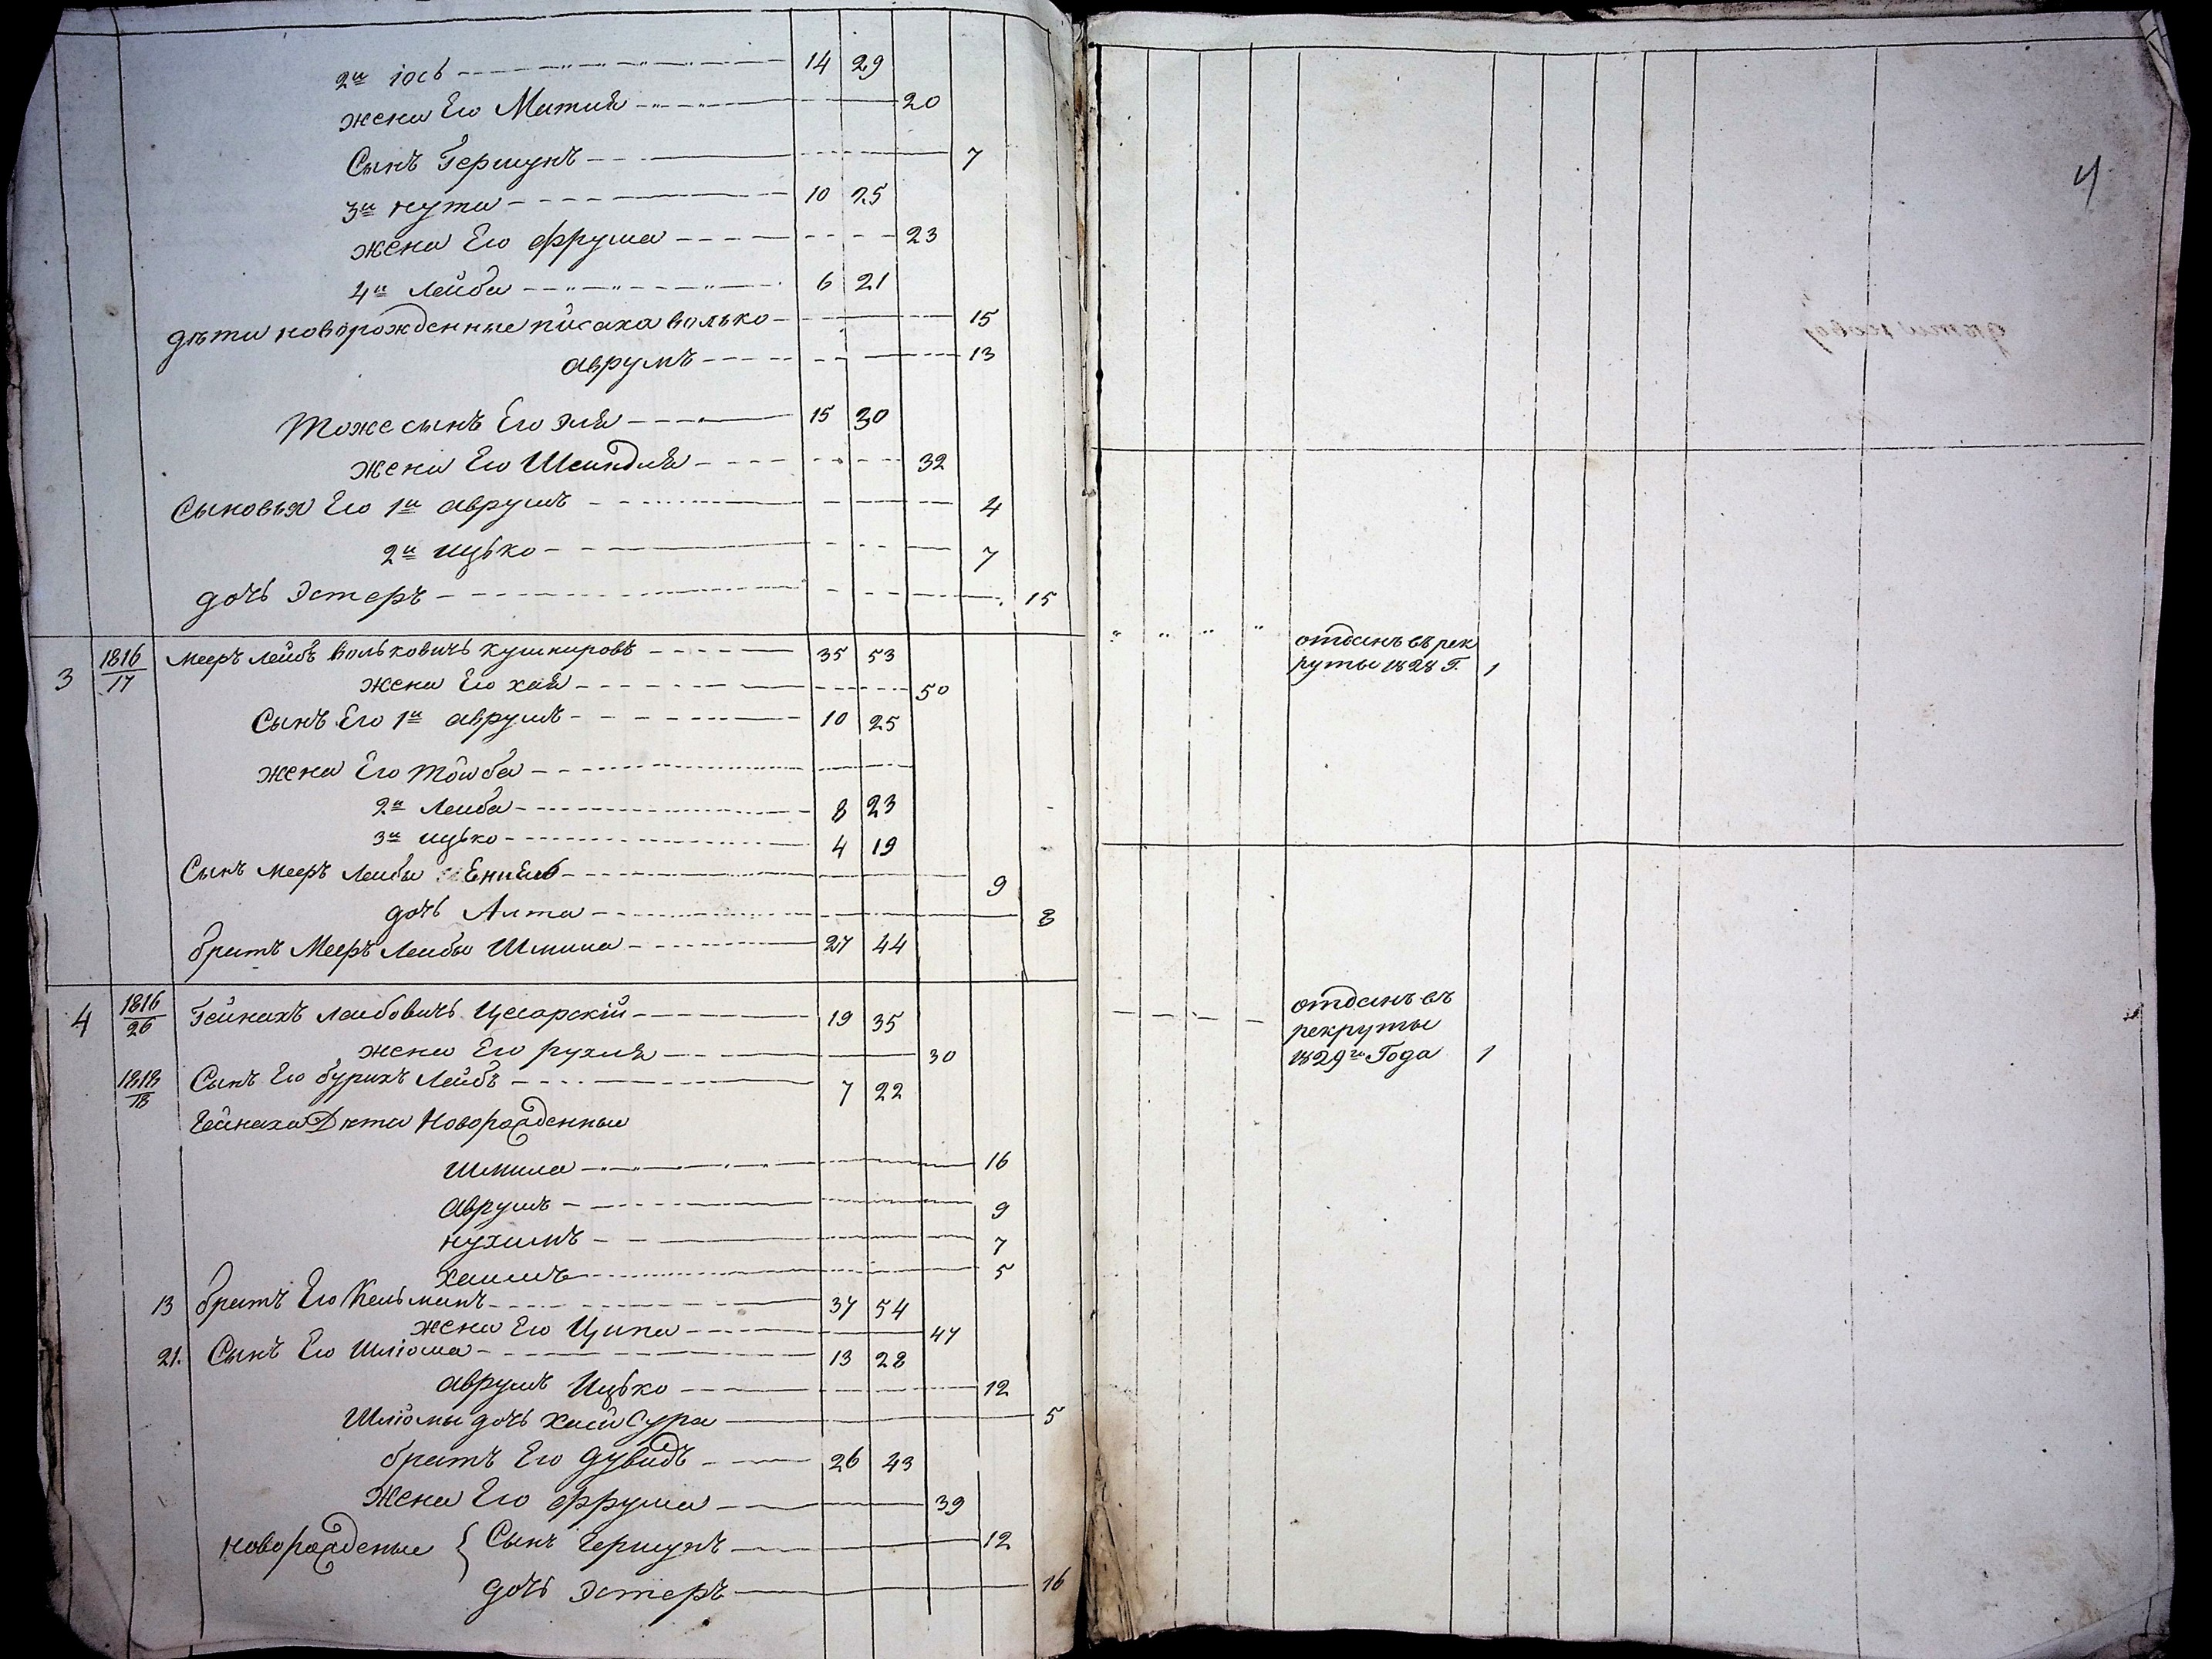 2й iось 14 29
жена Его Матля 20
Сынъ Гершунъ 7
3й нута 10 25
жена Его фрума 23
4й Лейба 6 21
дѣти новорожденные писаха волько 15
аврумъ 13
Тоже сынъ Его эля 15 30
жена Его Шейндля 32
Сыновья Его 1й аврумъ 4
2й ицько 7
дочь Эстеръ 15
3 1816/17 Мееръ Лейбъ Вольковичъ кушнировъ 35 53
жена Его хая 50
Сынъ Его 1й аврумъ 10 25
жена Его Тойба
2й Леиба 8 23
3й ицько 4 19
Сынъ Мееръ Леибы 9
дочь Алта 8
братъ Мееръ Леибы Шмила 27 44
4 1816/26 Гейнахъ Лейбовичъ Цесарскiй 19 35
жена Его рухля 30
1818/18 Сынъ Его бурихъ Лейбъ 7 22
Гейнаха Дѣти Новорожденные
Шмила 16
аврумъ 9
нухимъ 7
хаимъ 5
13 братъ Его Кельманъ 37 54
жена Его Ципа 47
21. Сынъ Его Шлiома 13 28
аврумъ Ицько 12
Шлiомы дочь хая Сура 5
братъ Его дувидъ 26 43
Жена Его фрума 39
новорожденые { Сынъ Гершунъ 12
дочь Эстеръ 16
4
отданъ въ рек
руты 1828 Г. 1
отданъ въ
рекруты
1829го Года 1